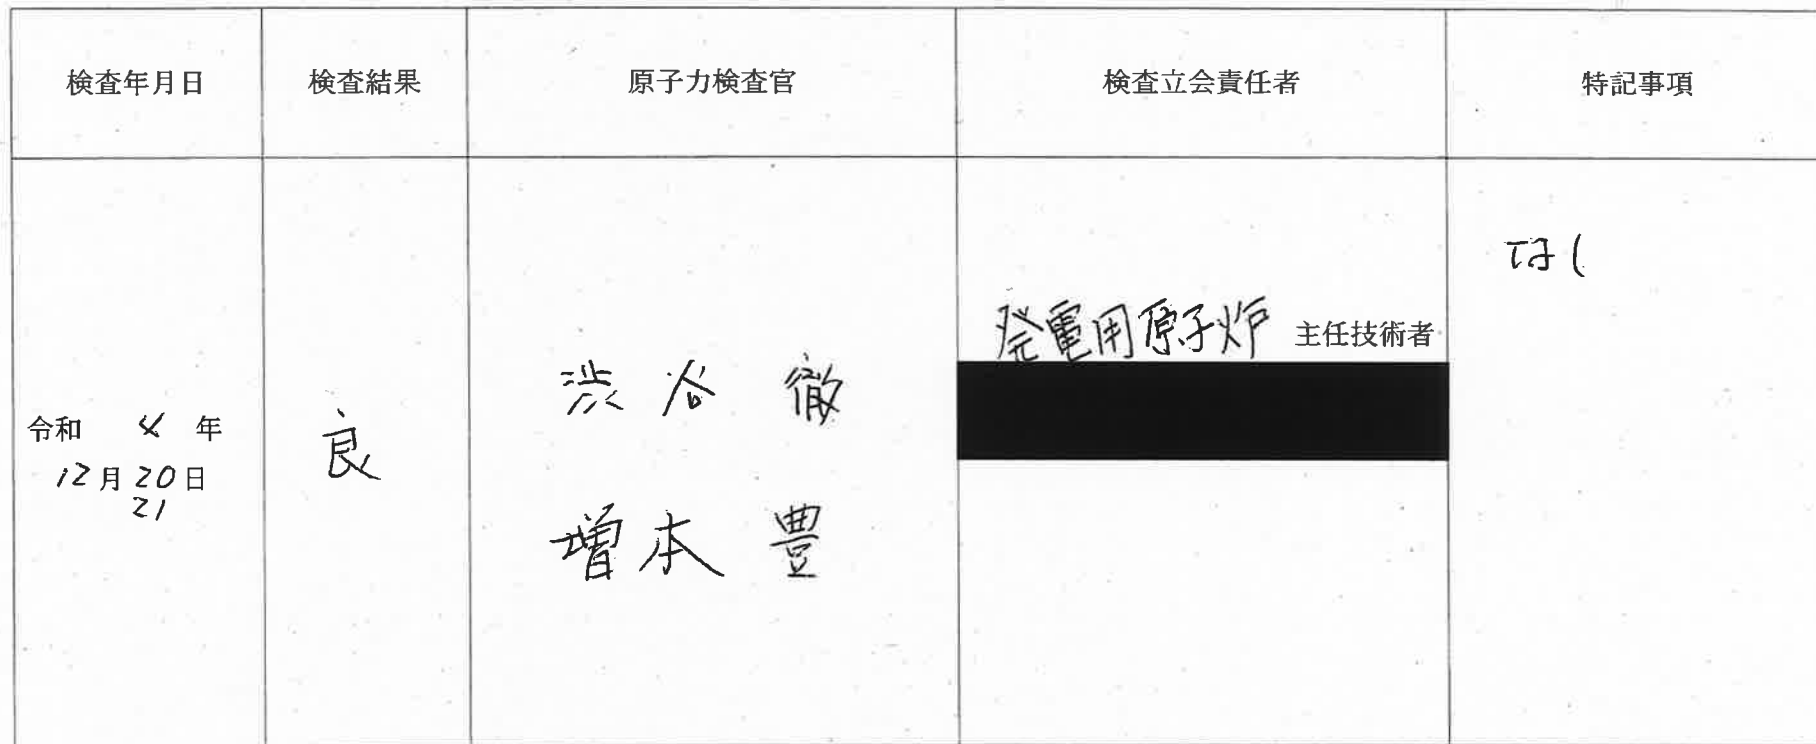 検査年月日 検査結果 原子力検査官 検査立会責任者 特記事項
令和 4 年
12月20日
21
良
渋谷 徹
増本 豊
発電用原子炉 主任技術者
なし